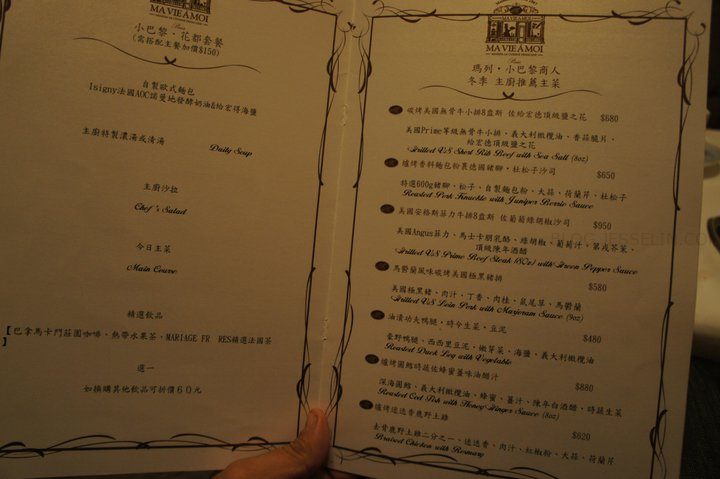 MA VIE À MOI
小巴黎・花都套餐
(需搭配主餐加價$150)
自製歐式麵包
Isigny法國AOC諾曼地發酵奶油&給宏得海鹽
主廚特製濃湯或清湯
Daily Soup
主廚沙拉
Chef's Salad
今日主菜
Main Course
精選飲品
【巴拿馬卡門莊園咖啡、熱帶水果茶、MARIAGE FR RES精選法國茶
】
選一
如換購其他飲品可折價60元
MA VIE À MOI
Paris
瑪列・小巴黎商人
冬季 主廚推薦主菜
碳烤美國無骨牛小排8盎斯 佐給宏德頂級鹽之花 $680
美國Prime等級無骨牛小排、義大利橄欖油、香蒜脆片、
給宏德頂級鹽之花
Grilled US Short Rib Beef with Sea Salt (8oz)
爐烤香料麵包粉裹德國豬腳、杜松子沙司 $650
特選600g豬腳、松子、自製麵包粉、大蒜、荷蘭芹、杜松子
Roasted Pork Knuckle with Juniper Berrie Sauce
美國安格斯菲力牛排8盎斯 佐葡萄綠胡椒沙司 $950
美國Angus菲力、馬士卡朋乳酪、綠胡椒、葡萄汁、第戎芥茉、
頂級陳年酒醋
Grilled US Prime Beef Steak (8Oz) with Green Pepper Sauce
馬鬱蘭風味碳烤美國極黑豬排 $580
美國極黑豬、肉汁、丁香、肉桂、鼠尾草、馬鬱蘭
Grilled US Loin Pork with Marjoram Sauce (9oz)
油漬功夫鴨腿，時令生菜，豆泥 $480
豪野鴨腿、西西里豆泥、嫩芽菜、海鹽、義大利橄欖油
Roasted Duck Leg with Vegetable
爐烤圓鱈時蔬佐蜂蜜薑味油醋汁 $880
深海圓鱈、義大利橄欖油、蜂蜜、薑汁、陳年白酒醋、時蔬生菜
Roasted Cod Fish with Honey Ginger Sauce (8oz)
爐烤迷迭香鹿野土雞 $620
去骨鹿野土雞二分之一、迷迭香、肉汁、紅椒粉、大蒜、荷蘭芹
Braised Chicken with Rosmary